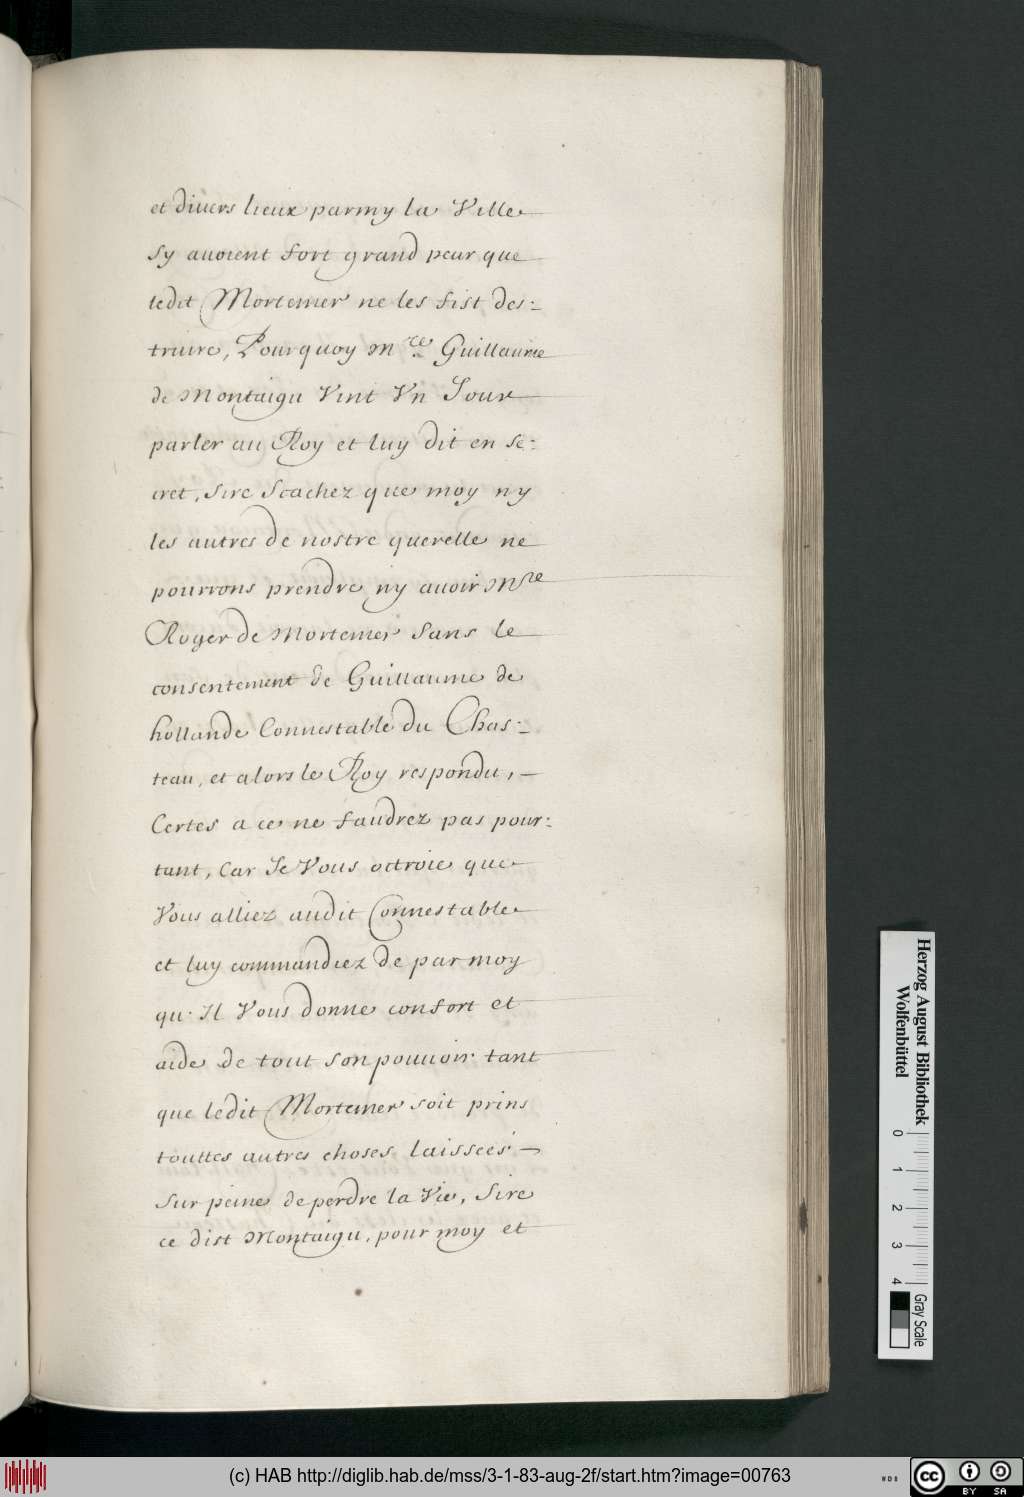 et divers lieux parmy la Ville
sy avoient fort grand peur que
ledit Mortemer ne les fist des:
truire, Pourquoy Mre. Guillaume
de Montaigu Vint Vn Jour
parler au Roy et luy dit en se:
cret, sire scachez que moy ny
les autres de nostre querelle ne
pourrons prendre ny auoir Mre
Roger de Mortemer sans le
consentement de Guillaume de
hollande Connestable du Chas:
teau, et alors le Roy respondu,
Certes a ce ne faudrez pas pour:
tant, Car Je Vous octroie que
Vous alliez audit Connestable
et luy commandiez de par moy
qu'Il Vous donne confort et
aide de tout son pouuoir tant
que ledit Mortemer soit prins
touttes autres choses laissees
sur peine de perdre la Vie, Sire
ce dist Montaigu, pour moy et
Herzog August Bibliothek
Wolfenbüttel
0 1 2 3 4
Gray Scale
(c) HAB http://diglib.hab.de/mss/3-1-83-aug-2f/start.htm?image=00763
WDB
cc BY SA